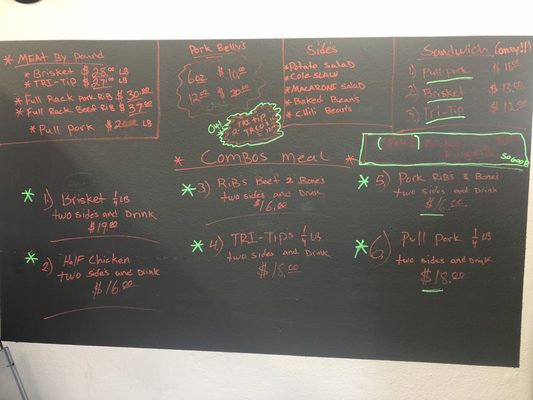 * MEAT By Pound
* Brisket $28.00 LB
* TRI-TiP $27.00 LB
* Full Rack Pork RiB $30.00
* Full Rack Beef RiB $37.00
* Pull Pork $20.00 LB
Pork Belly's
6oz $10.00
12oz $20.00
TRI-Tip
TACOS
Sides
* Potato Salad
* Cole-SLAW
* MACARONi SALAD
* Baked Beans
* CHili Beans
Sandwich (only!!)
1) Pull Pork $11.00
2) Brisket $13.00
3) Tri-Tip $12.00
SO GOOD
* Combos Meal *
* 1) Brisket 1/4 LB
two sides and Drink
$19.00
* 2) Half Chicken
two sides and Drink
$16.00
* 3) RiBs Beef 2 Bones
two sides and Drink
$16.00
* 4) TRI-Tips 1/4 LB
two sides and Drink
$18.00
* 5) Pork RiBs 3 Bones
two sides and Drink
$16.00
* 6) Pull Pork 1/4 LB
two sides and Drink
$18.00